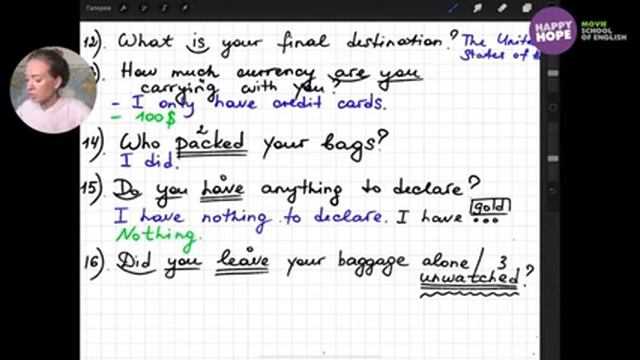 Галерея
HAPPY HOPE MOVIE SCHOOL OF ENGLISH
12). What is your final destination? The United
States of
). How much currency are you
carrying with you?
- I only have credit cards.
- 100$
14). Who packed your bags?
2
I did.
15). Do you have anything to declare?
I have nothing to declare. I have gold ...
Nothing.
16). Did you leave your baggage alone/
3
unwatched?